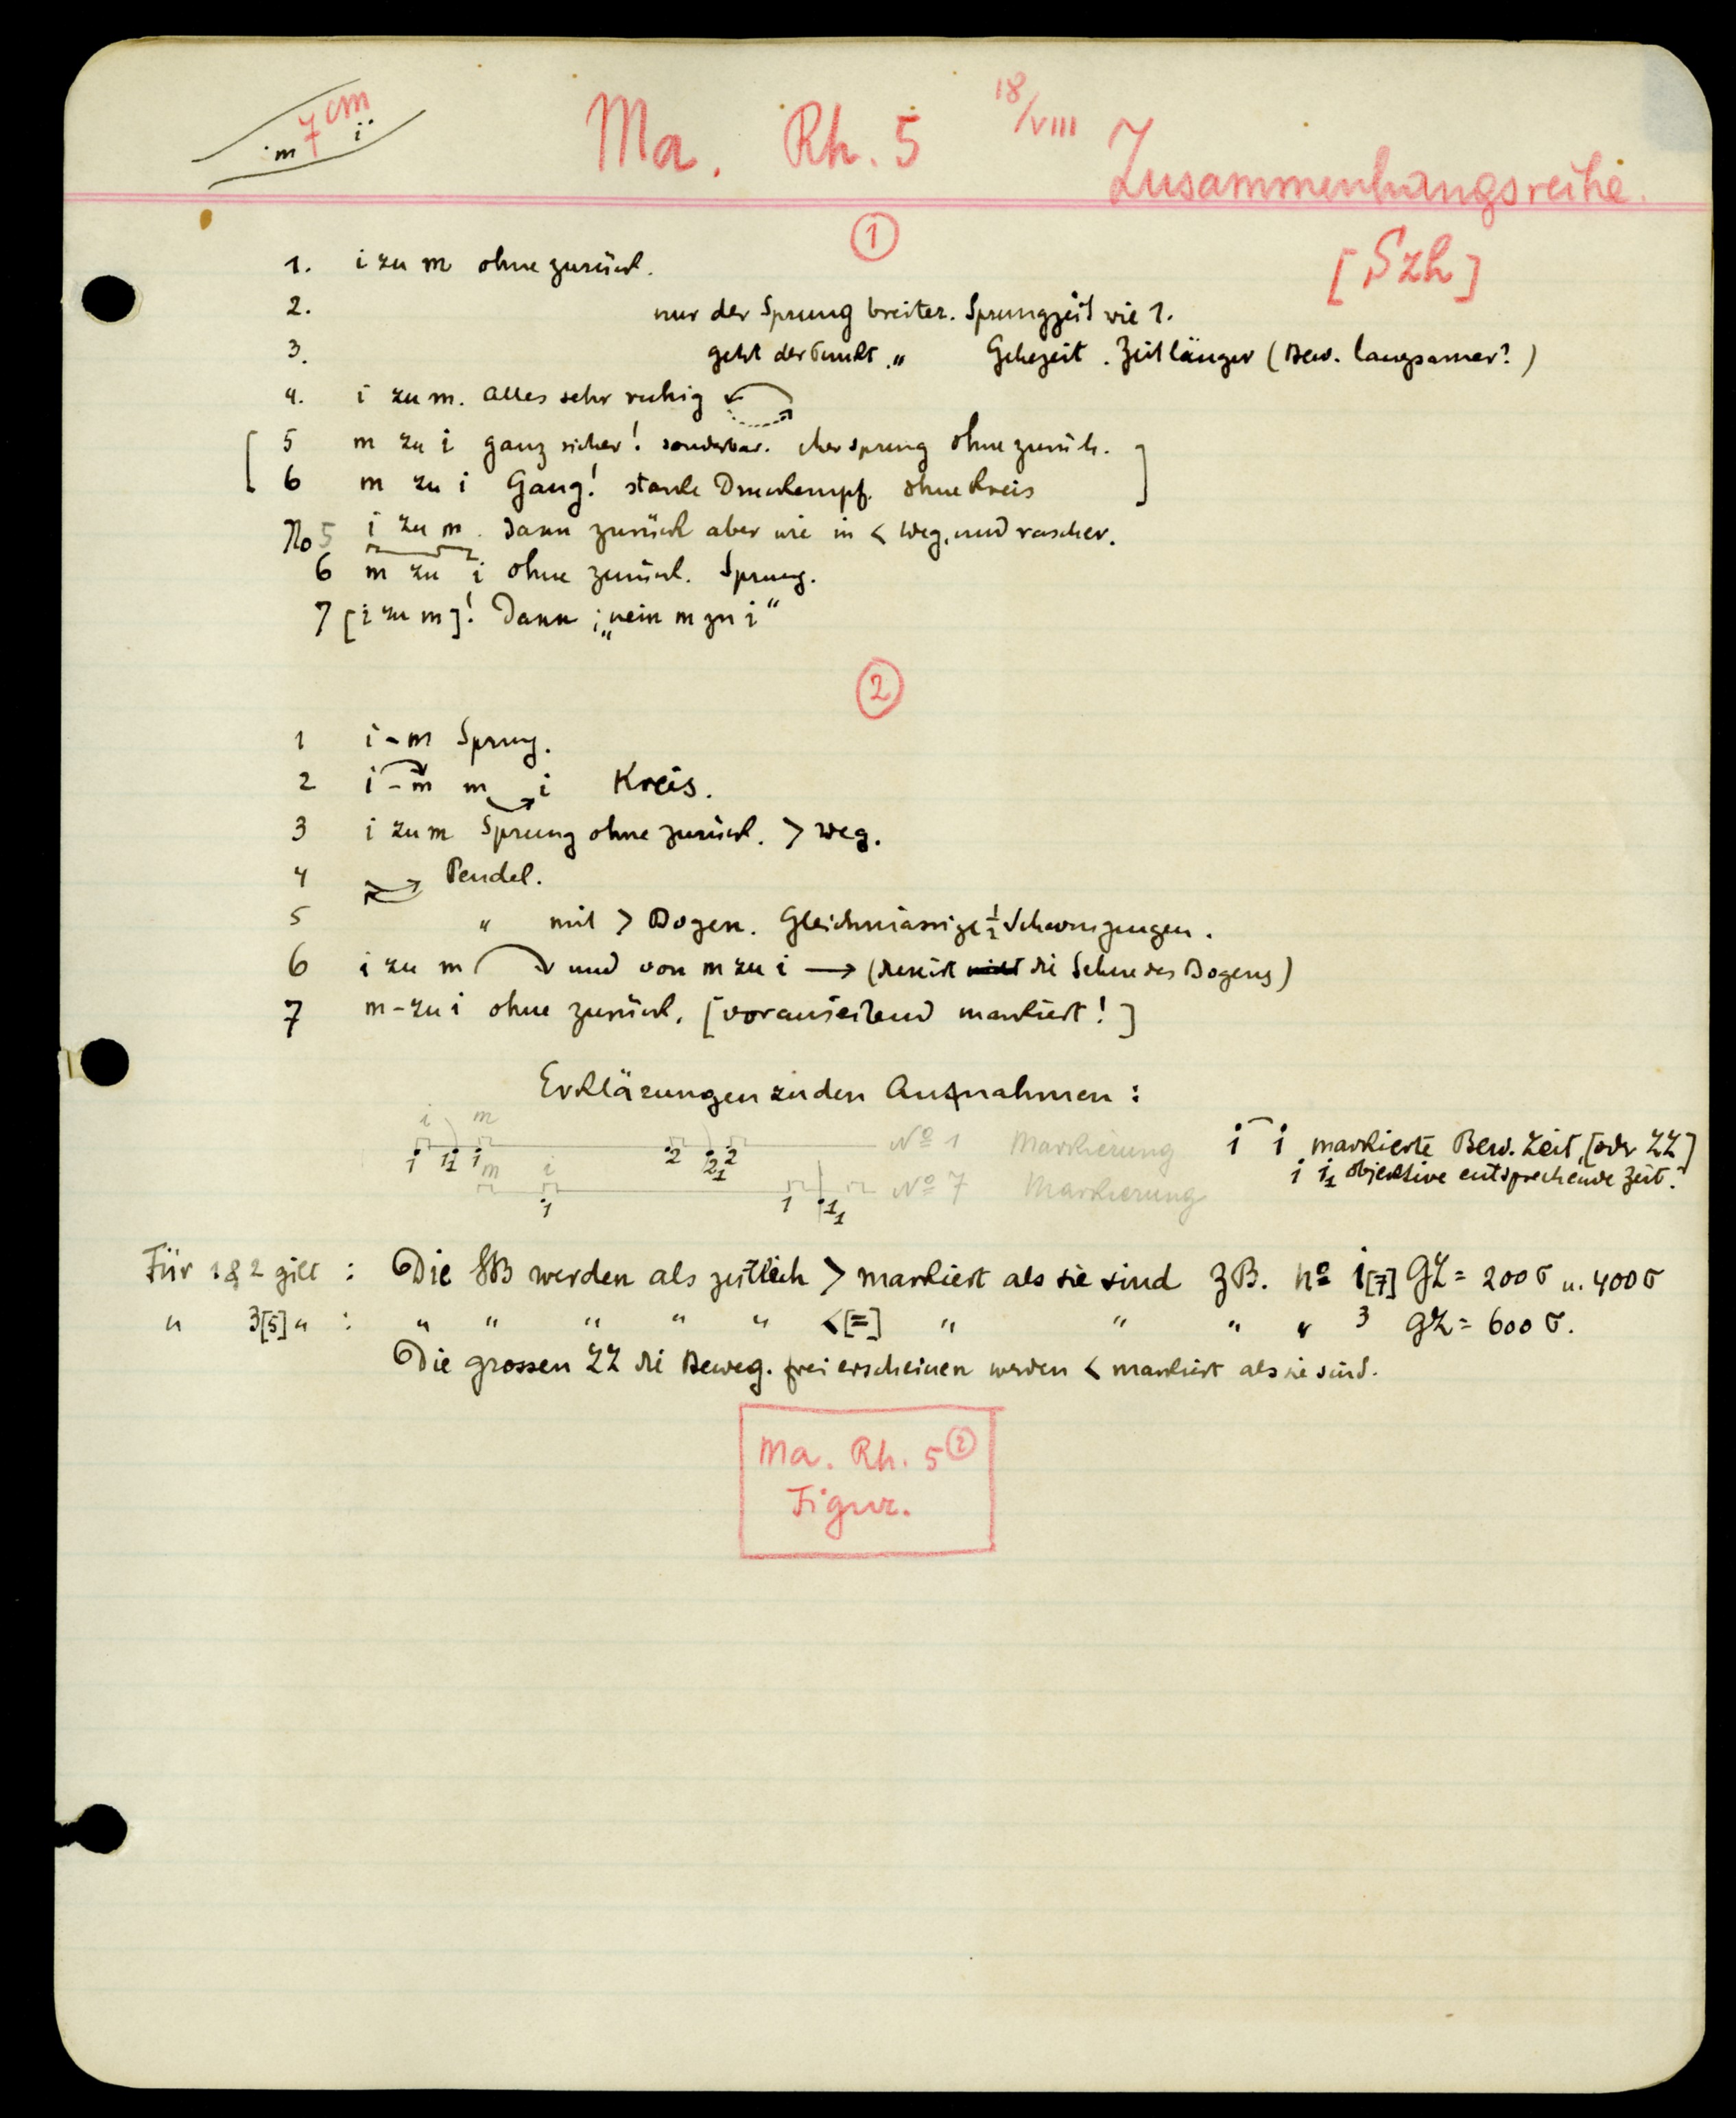 m 7 cm i
Ma. Rh. 5 18/VIII Zusammenhangsreihe.
[Szh]
1
1. i zu m ohne zurück.
2. nur der Sprung breiter. Sprungzeit wie 1.
3. geht der Punkt. " Gehezeit. Zeit länger (Bew. langsamer?)
4. i zu m. Alles sehr ruhig
[ 5 m zu i ganz sicher! sonderbar. Übersprung ohne zurück. ]
6 m zu i Gang! starke Druckempf. ohne Kreis
No 5 i zu m. Dann zurück aber wie in < Weg, und rascher.
6 m zu i ohne zurück. Sprung.
7 [i zu m]! Dann „nein m zu i“
2
1 i - m Sprung.
2 i - m m i Kreis.
3 i zu m Sprung ohne zurück. > Weg.
4 Pendel.
5 " mit > Bogen. Gleichmässige ½ Schwingungen.
6 i zu m und von m zu i → (dieses ist nicht die Sehne des Bogens)
7 m - zu i ohne zurück. [vorauseilend markiert!]
Erklärungen zu den Aufnahmen:
i m
No 1 Markierung i i markierte Bew. Zeit, [oder ZZ]
1 1₁ 1 2 2₁ 2
i i₁ objektive entsprechende Zeit.
m i
No 7 Markierung
1 1 1₁
Für 1 & 2 gilt : Die SB werden als zeitlich > markiert als sie sind z.B. No 1[7] GZ = 200 σ u. 400 σ
" 3[5] " : " " " " " <[=] " " " " 3 GZ = 600 σ.
Die grossen ZZ die Beweg. frei erscheinen werden < markiert als sie sind.
Ma. Rh. 5 2
Figur.